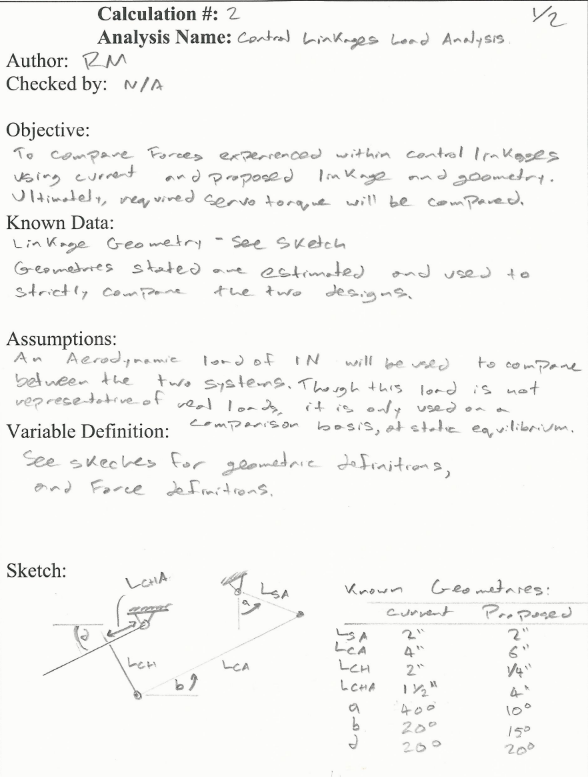 Calculation #: 2
1/2
Analysis Name: Control Linkages Load Analysis.
Author: RM
Checked by: N/A
Objective:
To compare Forces experienced within control linkages
using current and proposed linkage and geometry.
Ultimately, required servo torque will be compared.
Known Data:
Linkage Geometry - See Sketch
Geometries stated are estimated and used to
strictly compare the two designs.
Assumptions:
An Aerodynamic load of 1N will be used to compare
between the two systems. Though this load is not
representative of real loads, it is only used on a
comparison basis, at static equilibrium.
Variable Definition:
See skeches for geometric definitions,
and Force definitions.
Sketch:
LCHA
LSA
a
d
LCH
LCA
b
Known Geometries:
Current Proposed
LSA 2" 2"
LCA 4" 6"
LCH 2" 1/4"
LCHA 1 1/2" 4"
a 40° 10°
b 20° 15°
d 20° 20°